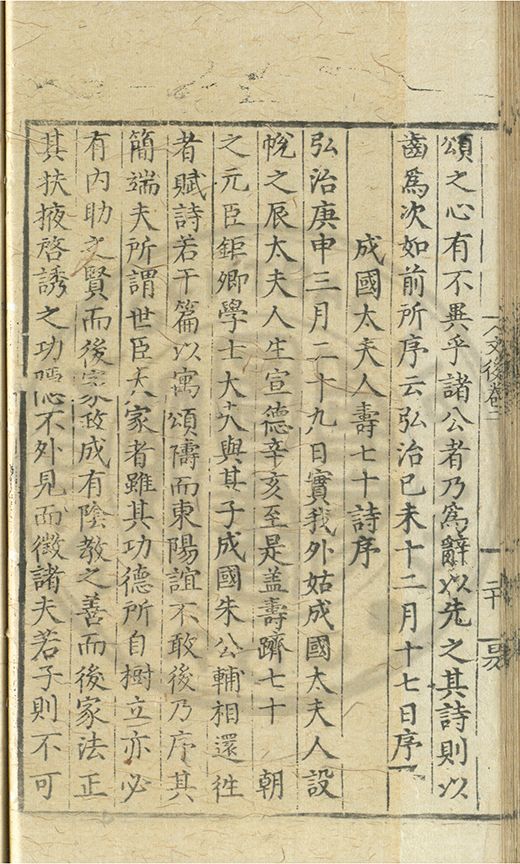 頌之心有不異乎諸公者乃爲辭以先之其詩則以
齒爲次如前所序云弘治已未十二月十七日序
成國太夫人壽七十詩序
弘治庚申三月二十九日實我外姑成國太夫人設
帨之辰太夫人生宣德辛亥至是盖壽躋七十 朝
之元臣鉅卿學士大夫與其子成國朱公輔相還徃
者賦詩若干篇以寓頌禱而東陽誼不敢後乃序其
簡端夫所謂世臣大家者雖其功德所自樹立亦必
有內助之賢而後家政成有陰教之善而後家法正
其扶掖啓誘之功隱不外見而徵諸夫若子則不可
文後卷三
二十四